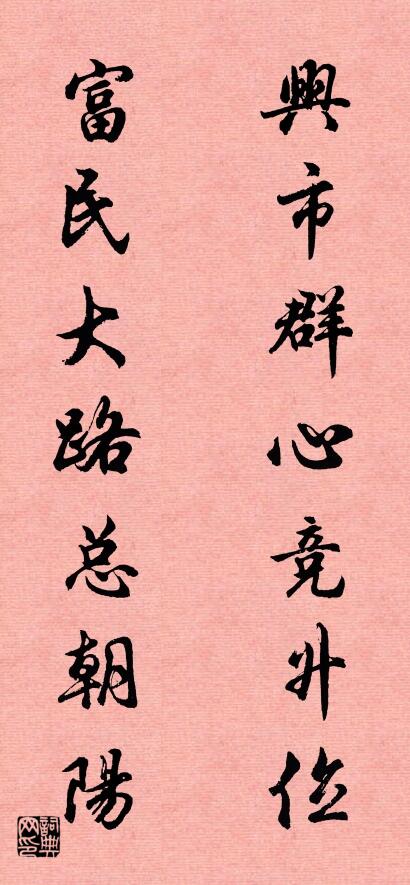 興市群心竞升位
富民大路总朝陽
詞典
网印